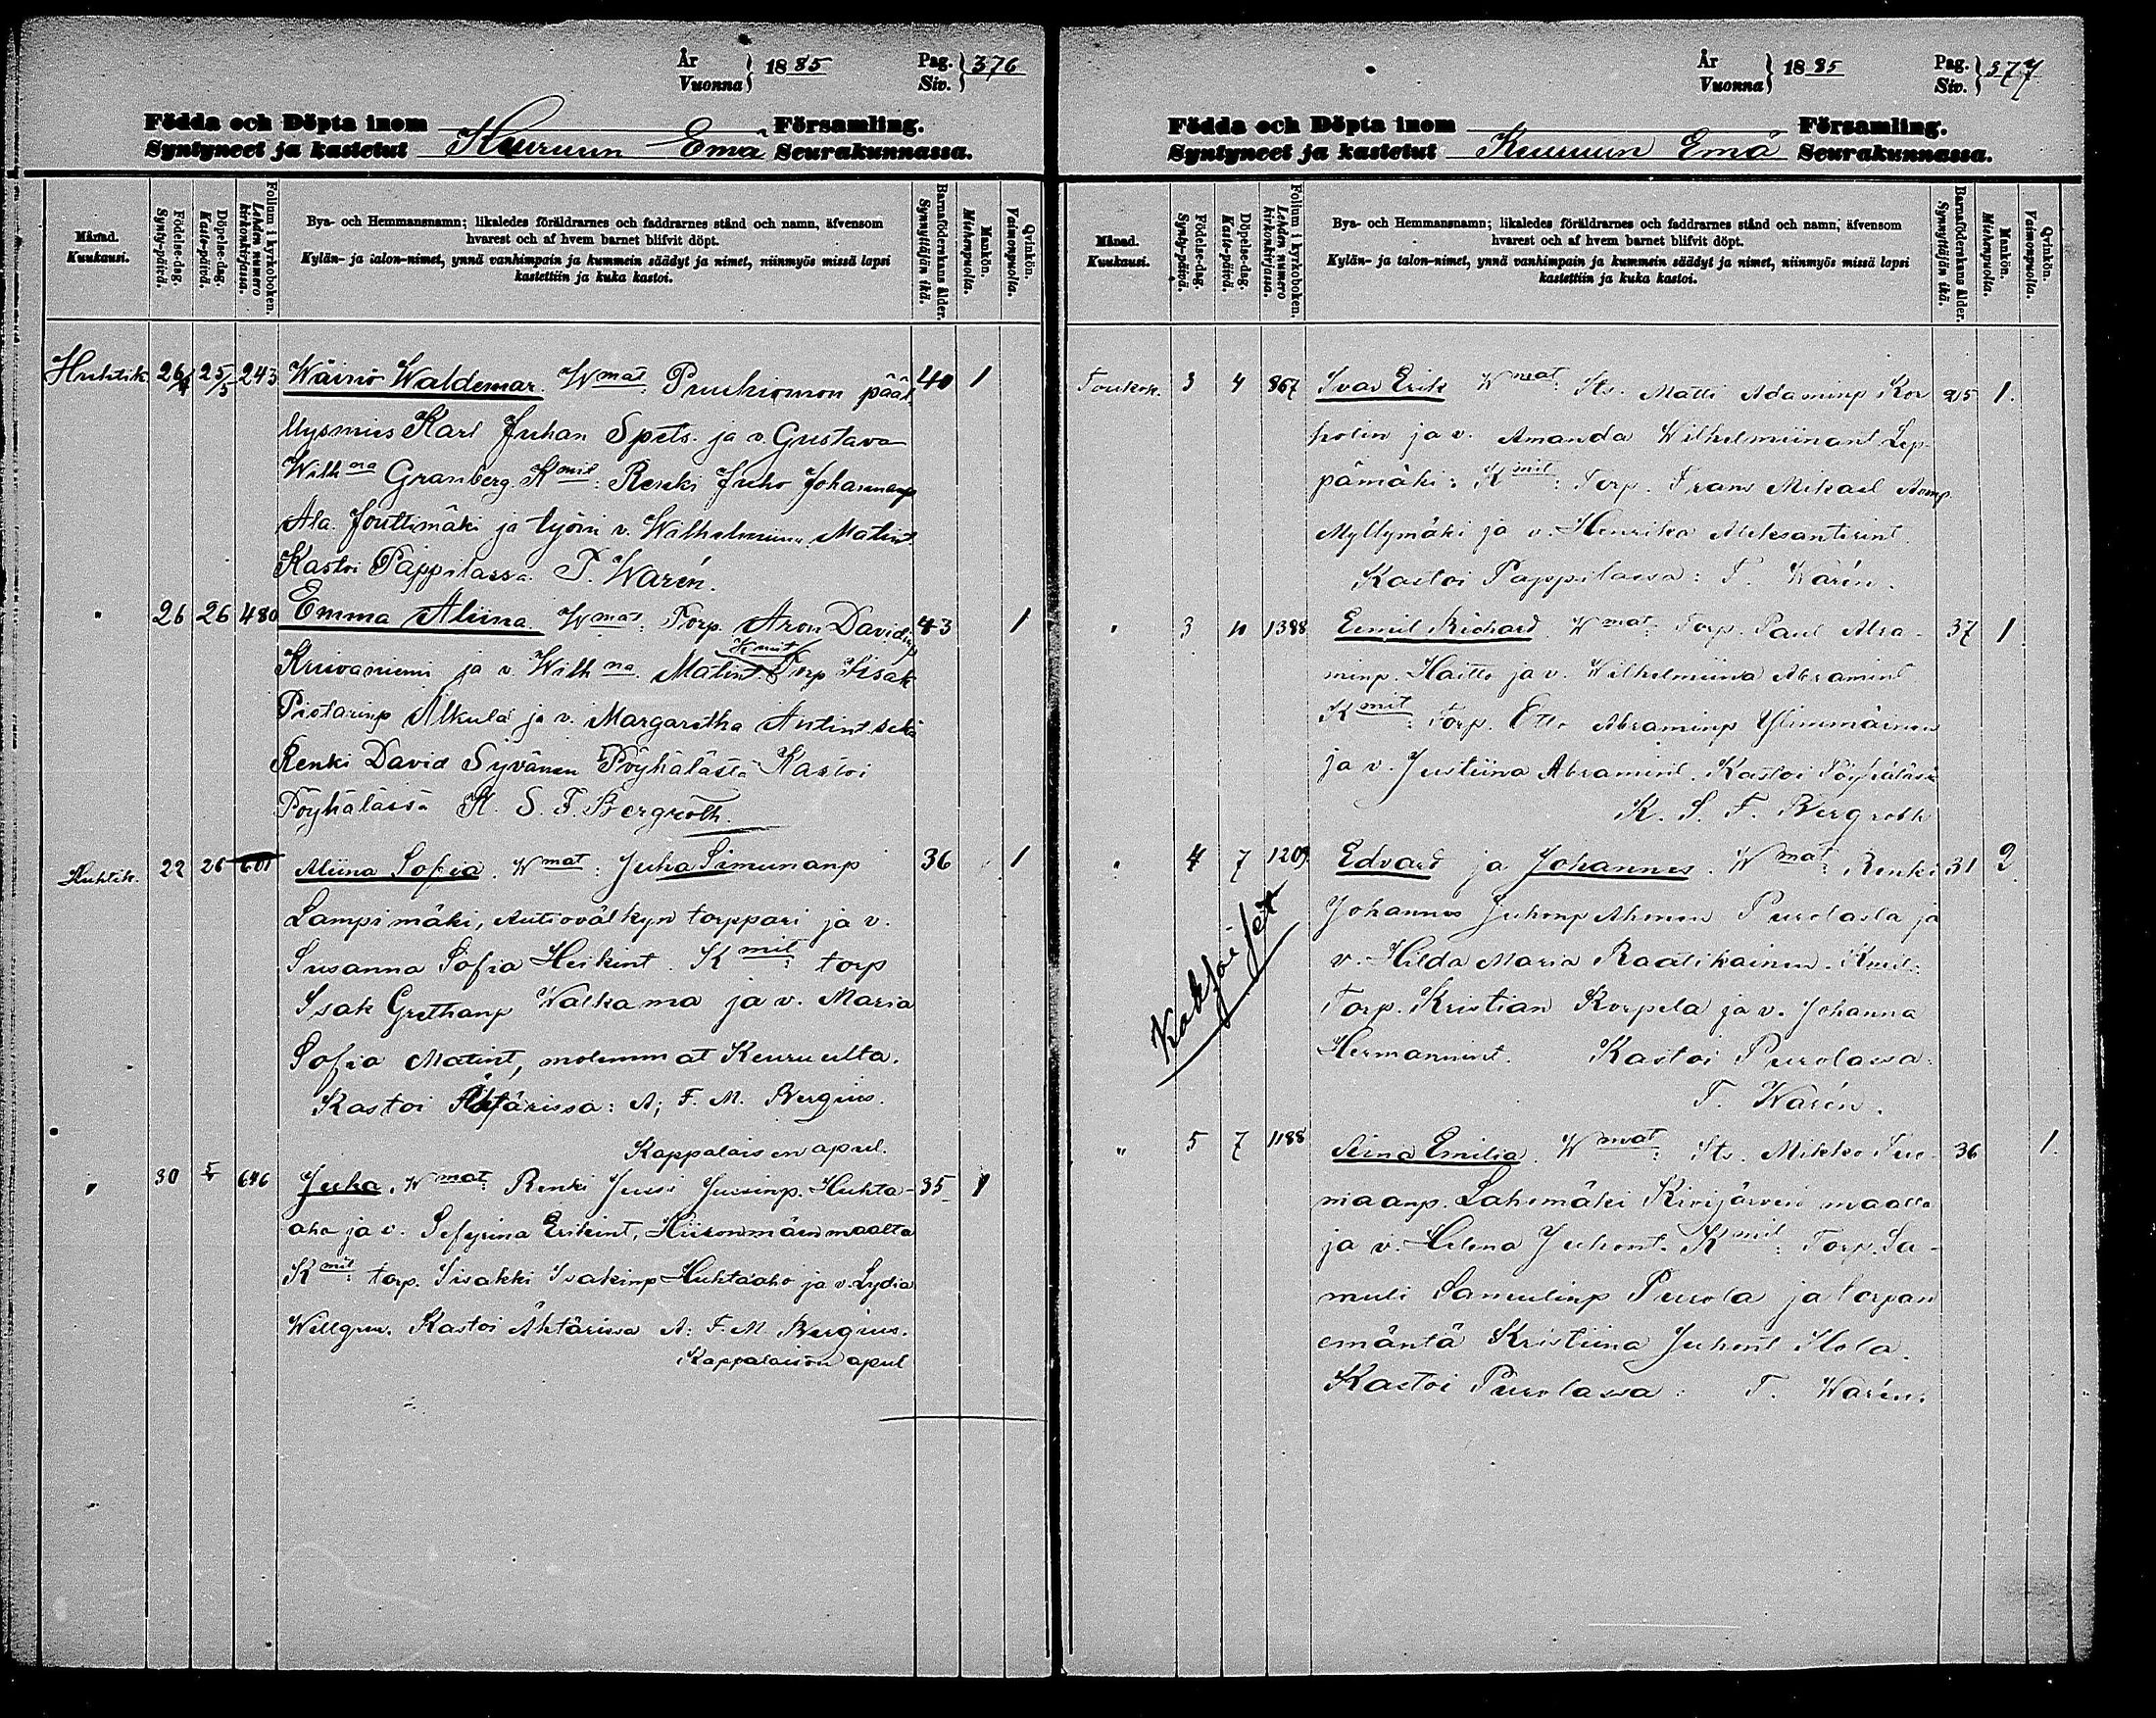 År
Vuonna } 1885 Pag.
Siv. } 376
Födda och Döpta inom Församling.
Syntyneet ja kastetut Keuruun Emä Seurakunnassa.
Månad.
Kuukausi.
Födelse-dag.
Synty-päivä.
Döpelse-dag.
Kaste-päivä.
Folium i kyrkoboken.
Lehden numero kirkonkirjassa.
Bya- och Hemmansnamn; likaledes föräldrarnes och faddrarnes stånd och namn, äfvensom
hvarest och af hvem barnet blifvit döpt.
Kylän- ja talon-nimet, ynnä vanhimpain ja kummein säädyt ja nimet, niinmyös missä lapsi
kastettiin ja kuka kastoi.
Barnaföderskans ålder.
Synnyttäjän ikä.
Mankön.
Miehenpuolta.
Qvinkön.
Vaimonpuolta.
Huhtik. 26/4 25/5 243 Wäinö Waldemar. Wmat: Puuhiomon pääl 40 1
lysmies Karl Juhan Spets. ja v. Gustava
Wilhna Granberg. Kmit: Renki Juho Johannanp
Ala. Jouttimäki ja työni v. Wilhelmiina Matint.
Kastoi Pappilassa. T. Warén.
" 26 26 480 Emma Aliina. Wmat: Torp. Aron Davidinp 43 1
Kruivaniemi ja v. Wilhna. Matint. Kmit Torp Iisak
Pietarinp Alkula ja v. Margaretha Antint. sekä
Renki David Syvänen Pöyhälästä Kastoi
Pöyhälässä K. S. F. Bergroth.
Huhtik. 22 26 601 Aliina Sofia. Wmat: Juha Simunanp 36 1
Lampimäki, Autiovälkyn torppari ja v.
Susanna Sofia Heikint. Kmit: torp
Isak Grethanp Walkama ja v. Maria
Sofia Matint, molemmat Keuruulta.
Kastoi Ähtärissä: A; F. M. Bergius.
Kappalaisen apul.
" 30 5 646 Juha. Wmat: Renki Jussi Jussinp. Huhta- 35 1
aho ja v. Sefyrina Erikint, Hiironmäen maalta
Kmit: torp. Iisakki Isakinp Huhtaaho ja v. Lydia
Willgren. Kastoi Ähtärissä A: F. M. Bergius.
Kappalaisen apul
År
Vuonna } 1885 Pag.
Siv. } 377
Födda och Döpta inom Församling.
Syntyneet ja kastetut Keuruun Emä Seurakunnassa.
Månad.
Kuukausi.
Födelse-dag.
Synty-päivä.
Döpelse-dag.
Kaste-päivä.
Folium i kyrkoboken.
Lehden numero kirkonkirjassa.
Bya- och Hemmansnamn; likaledes föräldrarnes och faddrarnes stånd och namn, äfvensom
hvarest och af hvem barnet blifvit döpt.
Kylän- ja talon-nimet, ynnä vanhimpain ja kummein säädyt ja nimet, niinmyös missä lapsi
kastettiin ja kuka kastoi.
Barnaföderskans ålder.
Synnyttäjän ikä.
Mankön.
Miehenpuolta.
Qvinkön.
Vaimonpuolta.
Toukok. 3 4 867 Ivar Erik Wmat: Its. Matti Adaminp Kor 25 1.
holin ja v. Amanda Wilhelmiinant. Lep-
pämäki: Kmit: Torp. Frans Mikael Aronp
Myllymäki ja v. Henrika Aleksanterint.
Kastoi Pappilassa: T. Warén.
" 3 10 1388 Eemil Richard. Wmat: Torp. Paul Abra- 37 1
minp. Haitto ja v. Wilhelmiina Abramint
Kmit: Torp. Otto Abraminp Ylimmäinen
ja v. Justiina Abramint. Kastoi Pöyhälässä
K. S. F. Bergroth
" 4 7 1209 Edvard ja Johannes. Wmat: Renki 31 2.
Kaksoiset
Johannes Juhonp Ahonen Purolasta ja
v. Hilda Maria Raatikainen. Kmit:
Torp. Kristian Korpela ja v. Johanna
Hermannint. Kastoi Purolassa:
T. Warén.
" 5 7 1188 Aina Emilia. Wmat: Its. Mikko Tuo- 36 1.
maanp. Lahimäki Kivijärven maalla
ja v. Helena Juhont. Kmit: Torp. Sa-
muli Samulinp Purola ja torpan
emäntä Kristiina Juhont Kola.
Kastoi Purolassa: T. Warén.